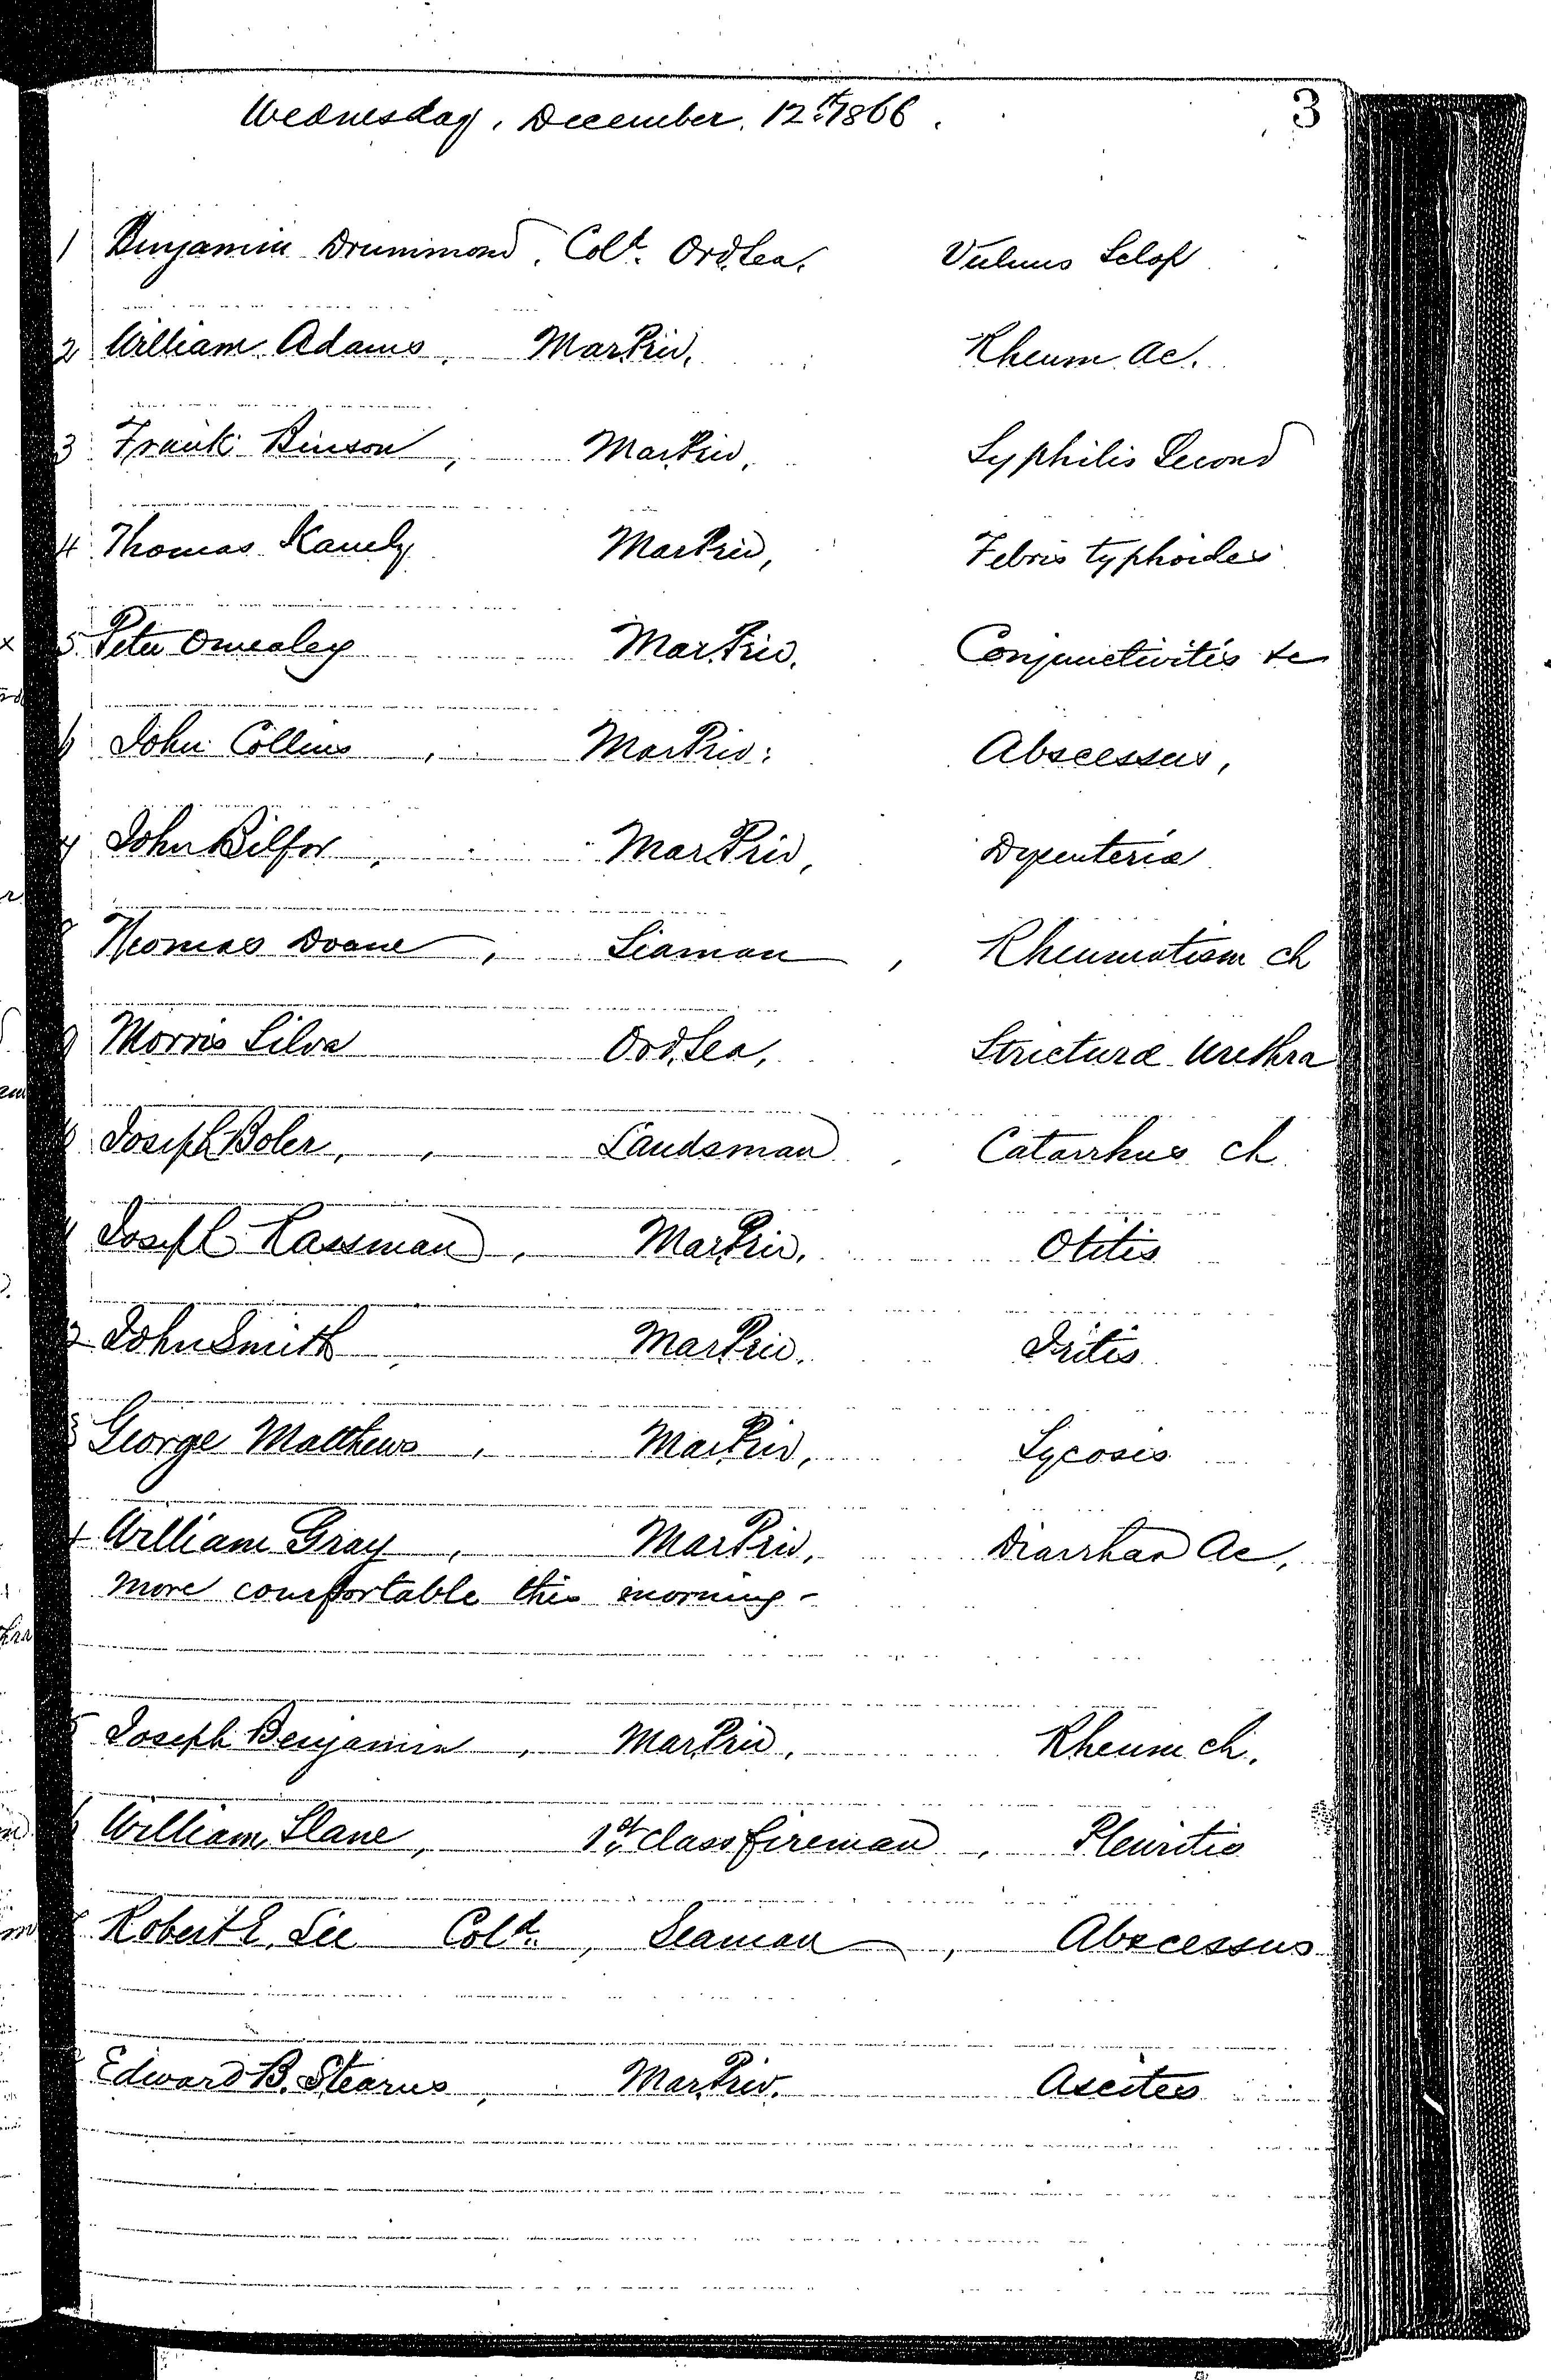 Wednesday, December. 12th 1866.
3
1 Benjamin Drummond, Cold. Ord. Sea. Vulnus Sclop
2 William Adams, Mar. Priv. Rheum. Ac.
3 Frank Binson, Mar. Priv, Syphilis Second
4 Thomas Kanely Mar. Priv, Febris typhoides
5 Peter Omealey Mar. Priv. Conjunctivitis &c
6 John Collins, Mar Priv. Abscessus,
7 John Bilfor, Mar. Priv, Dysenteria
8 Thomas Doane, Seaman, Rheumatism ch
9 Morris Silva Ord. Sea, Stricturæ Urethra
Joseph Boler, Landsman, Catarrhus ch
Joseph Kassman, Mar. Priv. Otitis
2 John Smith Mar. Priv. Iritis
3 George Matthews, Mar. Priv, Sycosis
4 William Gray, Mar Priv, Diarrhœa Ac,
more comfortable this morning -
5 Joseph Benjamin, Mar. Priv, Rheum ch.
6 William Slane, 1st Class fireman, Pleuritis
7 Robert E. Lee Cold., Seaman, Abscessus
Edward B. Stearns, Mar. Priv. Ascites